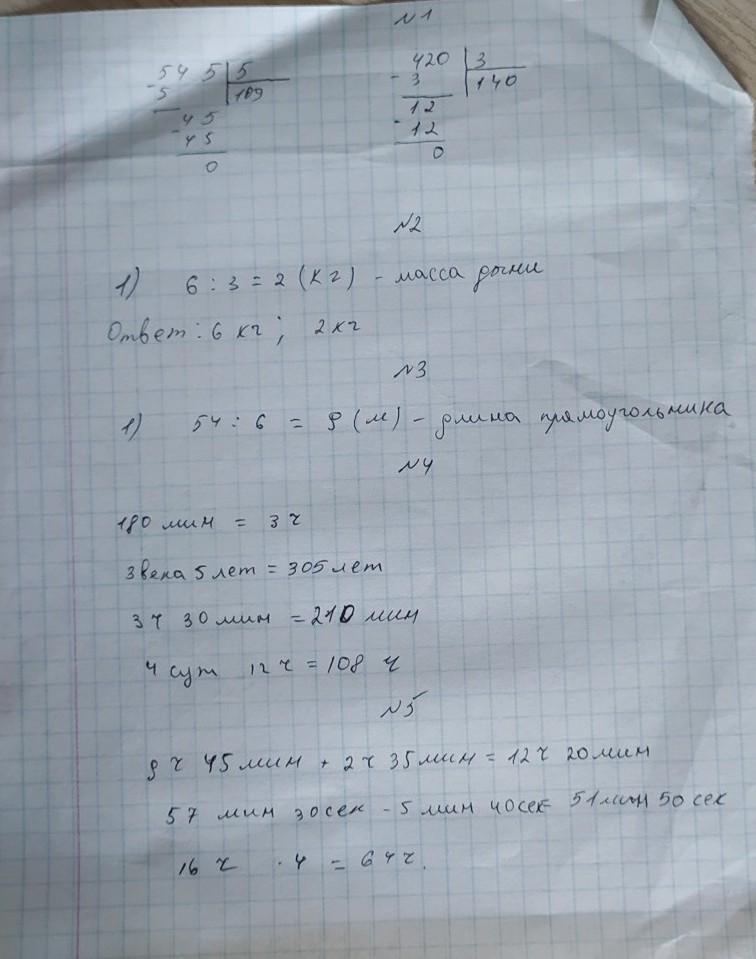 N1
545 5
- 5 109
45
- 45
0
420 3
- 3 140
12
- 12
0
N2
1) 6 : 3 = 2 (кг) - масса дыни
Ответ: 6 кг; 2 кг
N3
1) 54 : 6 = 9 (м) - длина прямоугольника
N4
180 мин = 3 ч
3 века 5 лет = 305 лет
3 ч 30 мин = 210 мин
4 сут 12 ч = 108 ч
N5
9 ч 45 мин + 2 ч 35 мин = 12 ч 20 мин
57 мин 30 сек - 5 мин 40 сек 51 мин 50 сек
16 ч · 4 = 64 ч.